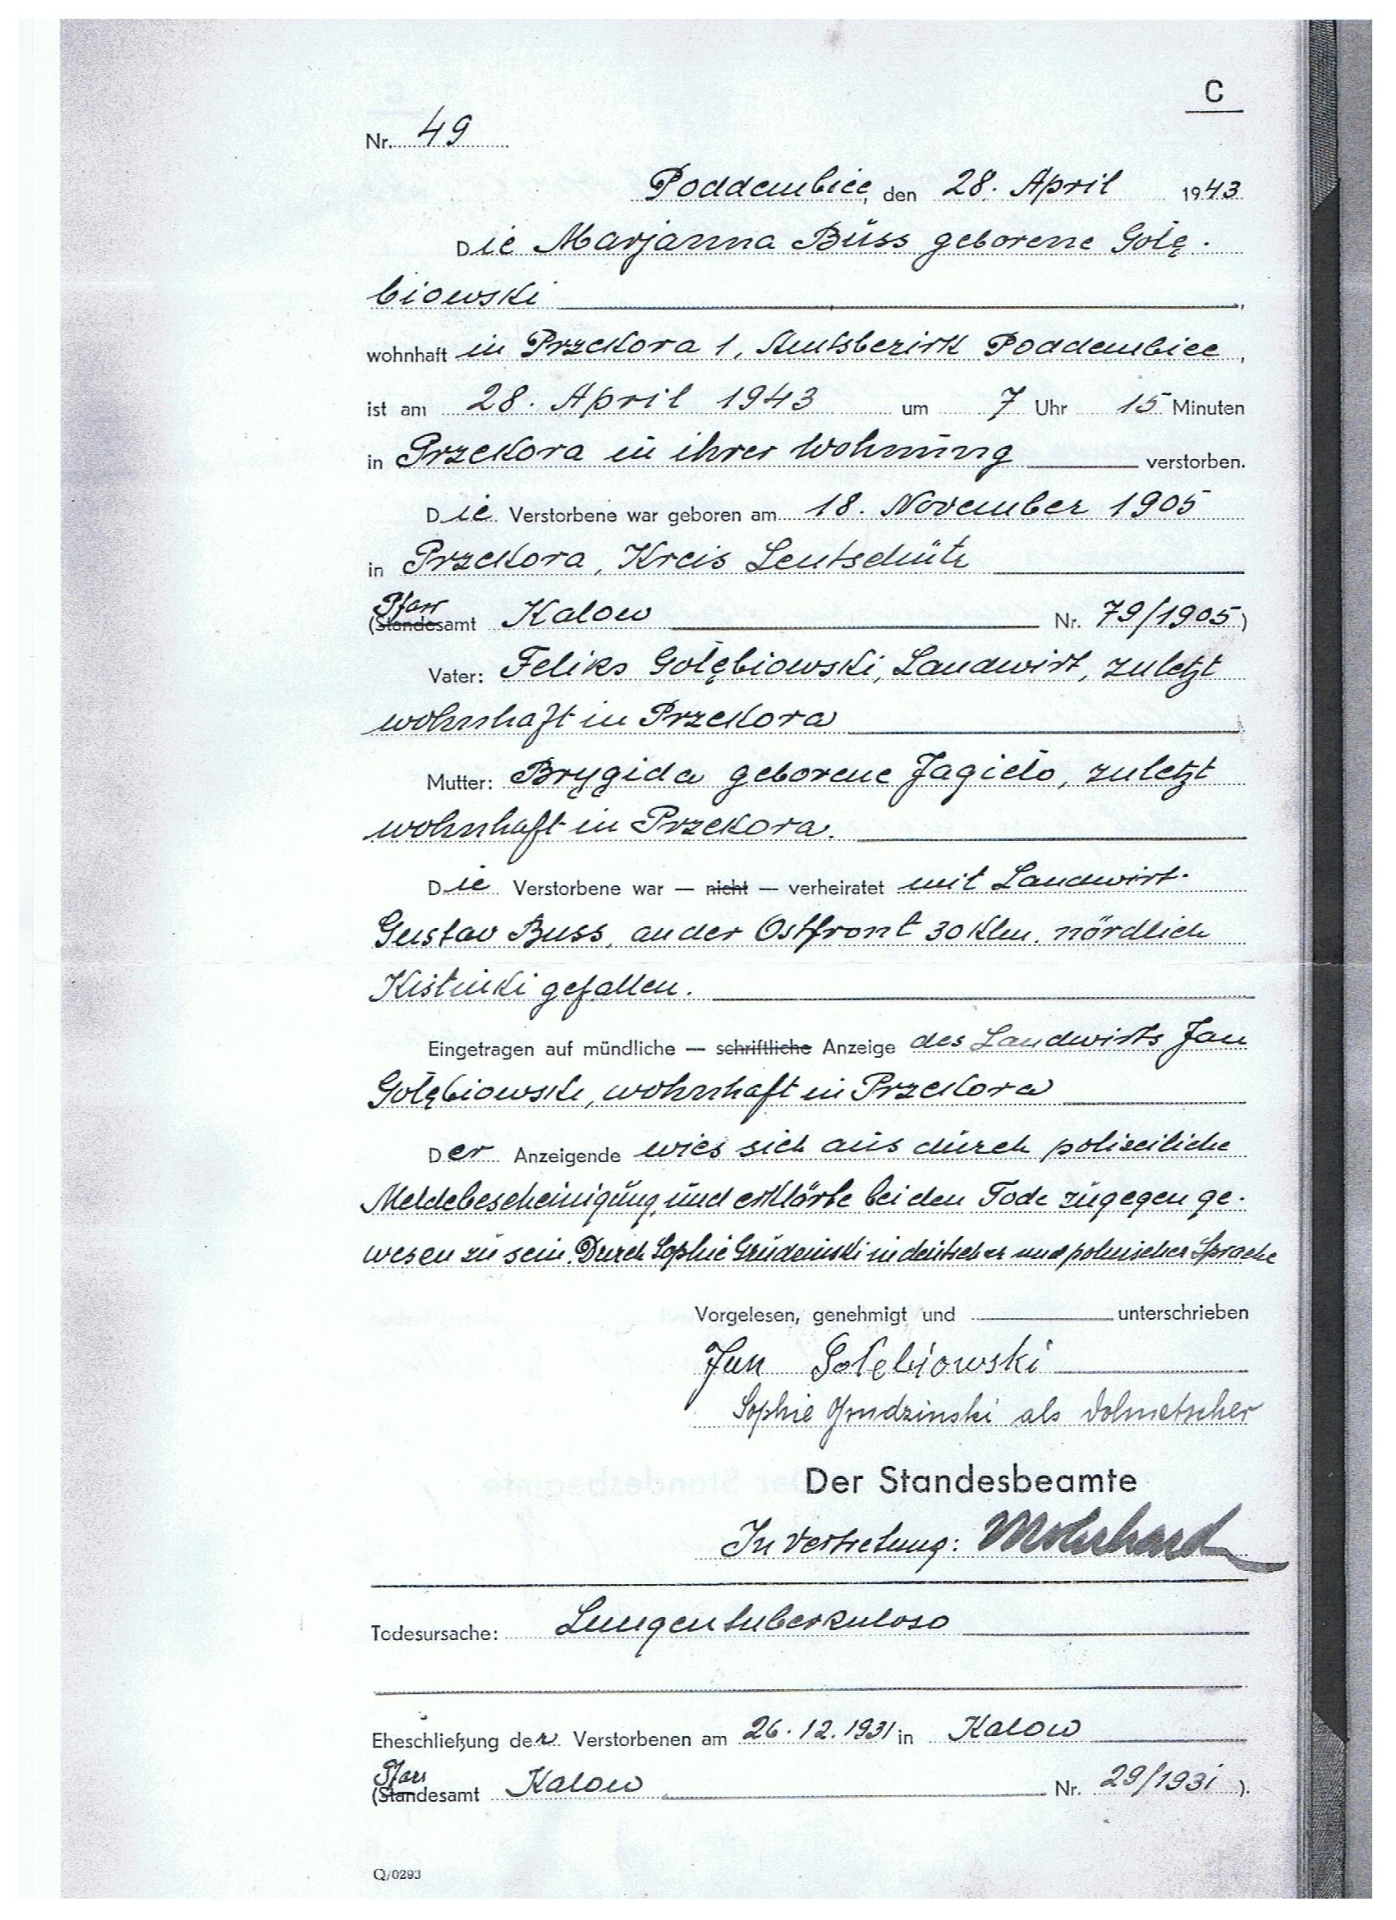 C
Nr. 49
Poddembice, den 28. April 1943
Die Marjanna Büss geborene Golę-
biowski
wohnhaft in Przekora 1, Amtsbezirk Poddembice,
ist am 28. April 1943 um 7 Uhr 15 Minuten
in Przekora in ihrer Wohnung verstorben.
Die Verstorbene war geboren am 18. November 1905
in Przekora, Kreis Lentschütz
Pfarr
(Standesamt Kalow Nr. 79/1905)
Vater: Feliks Golębiowski, Landwirt, zuletzt
wohnhaft in Przekora
Mutter: Brygida geborene Jagielo, zuletzt
wohnhaft in Przekora.
Die Verstorbene war — nicht — verheiratet mit Landwirt
Gustav Buss, an der Ostfront 30 Klm. nördlich
gefallen.
Eingetragen auf mündliche — schriftliche Anzeige des Landwirts Jan
Golębiowski, wohnhaft in Przekora
Der Anzeigende wies sich aus durch polizeiliche
Meldebescheinigung und erklärte bei den Tode zugegen ge-
wesen zu sein. Durch Sophie in deutscher und polnischer Sprache
Vorgelesen, genehmigt und unterschrieben
Jan Gołębiowski
Sophie Grudzinski als Dolmetscher
Der Standesbeamte
In Vertretung:
Todesursache: Lungentuberkulose
Eheschließung der Verstorbenen am 26.12.1931 in Kalow
Pfarr
(Standesamt Kalow Nr. 29/1931).
Q/0293